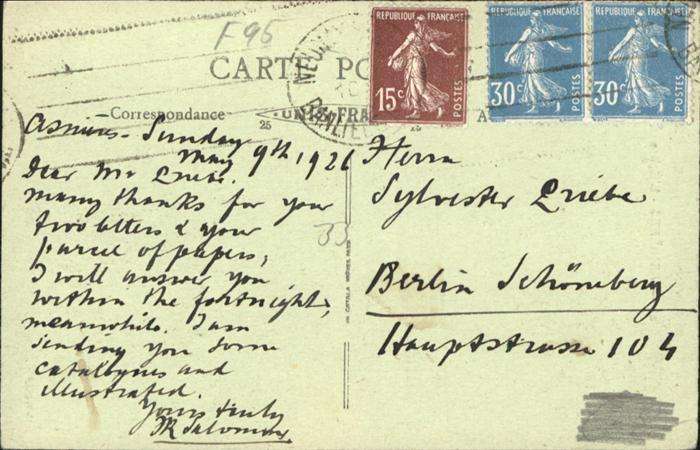 F 95
CARTE PO
RÉPUBLIQUE FRANÇAISE
15c
POSTES
RÉPUBLIQUE FRANÇAISE
30c
POSTES
RÉPUBLIQUE FRANÇAISE
30c
POSTES
Correspondance
25
25
Asnières - Sunday
May 9th 1926
Dear Mr Priebe.
Many thanks for your
two letters & your
parcel of papers,
I will answer you
within the fortnight,
meanwhile. I am
sending you some
catalogues and
illustrated.
Yours truly
Salomon
33
Herrn
Sylvester Priebe
Berlin Schöneberg
Hauptstrasse 104